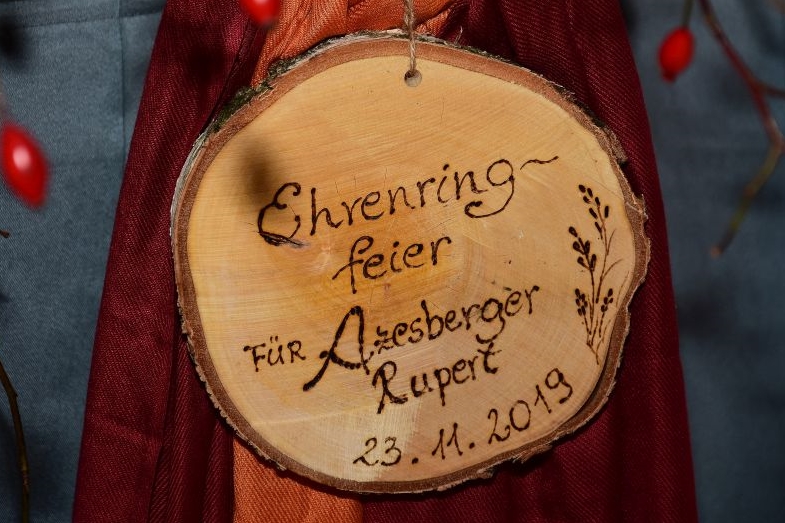 Ehrenring~
feier
FÜR Azesberger
Rupert
23.11.2019